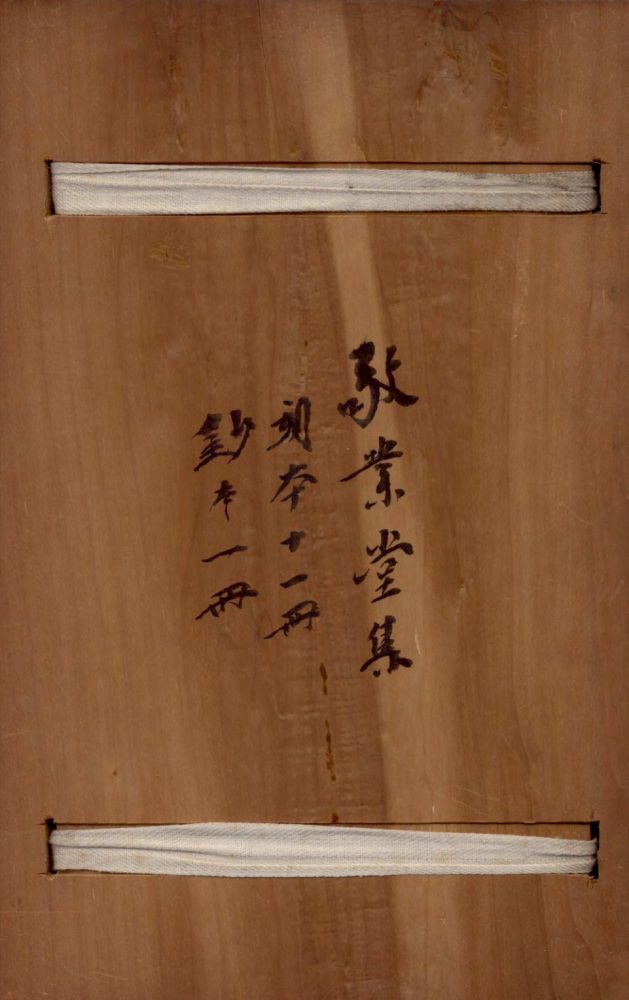 敬業堂集
刻本十一冊
鈔本一冊